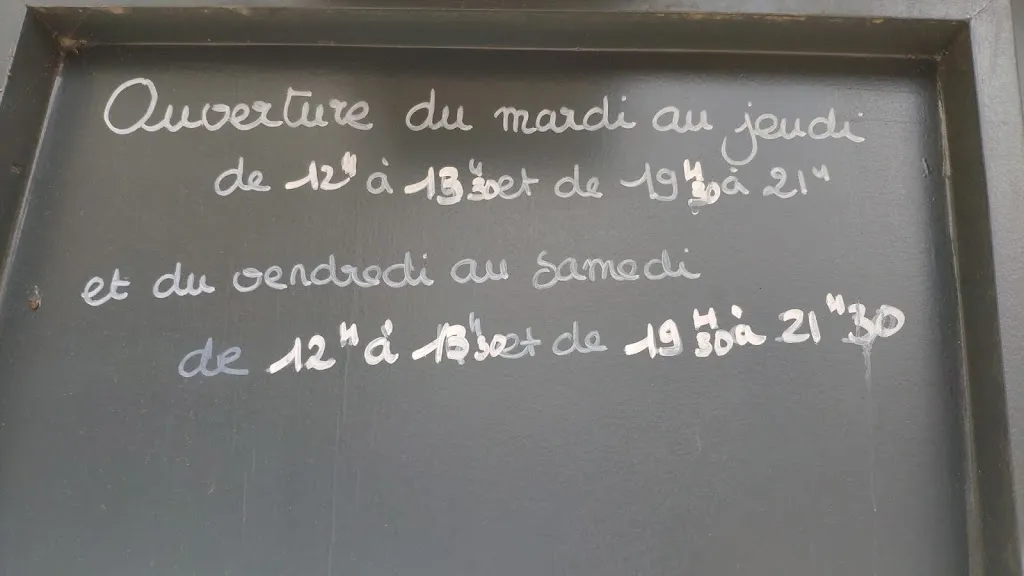 Ouverture du mardi au jeudi
de 12H à 13H30 et de 19H30 à 21H
et du vendredi au samedi
de 12H à 13H30 et de 19H30 à 21H30